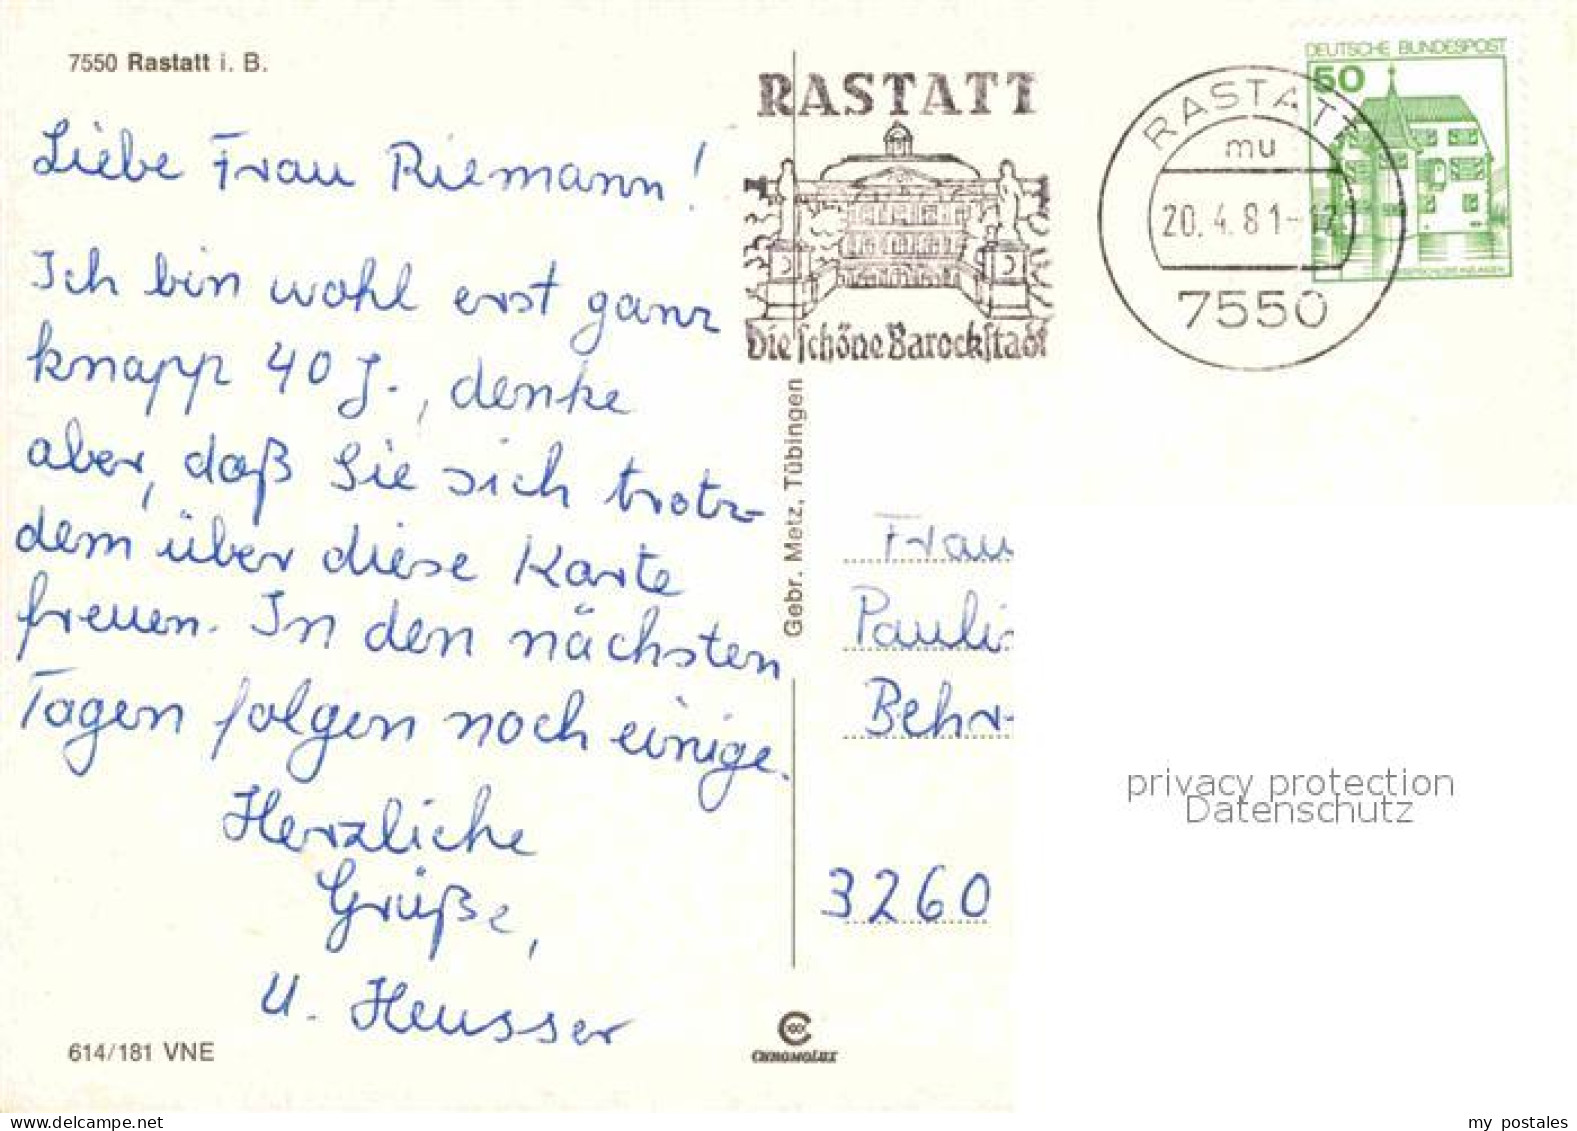 7550 Rastatt i. B.
Liebe Frau Riemann!
Ich bin wohl erst ganz
knapp 40 J., denke
aber, daß Sie sich trotz-
dem über diese Karte
freuen. In den nächsten
Tagen folgen noch einige.
Herzliche
Grüße,
U. Heusser
614/181 VNE
RASTATT
Die schöne Barockstadt
Gebr. Metz, Tübingen
CHROMOLUX
RASTATT
mu
20.4.81-12
7550
DEUTSCHE BUNDESPOST
50
Frau
Pauli
Behr-
3260
privacy protection
Datenschutz
www.delcampe.net
my_postales